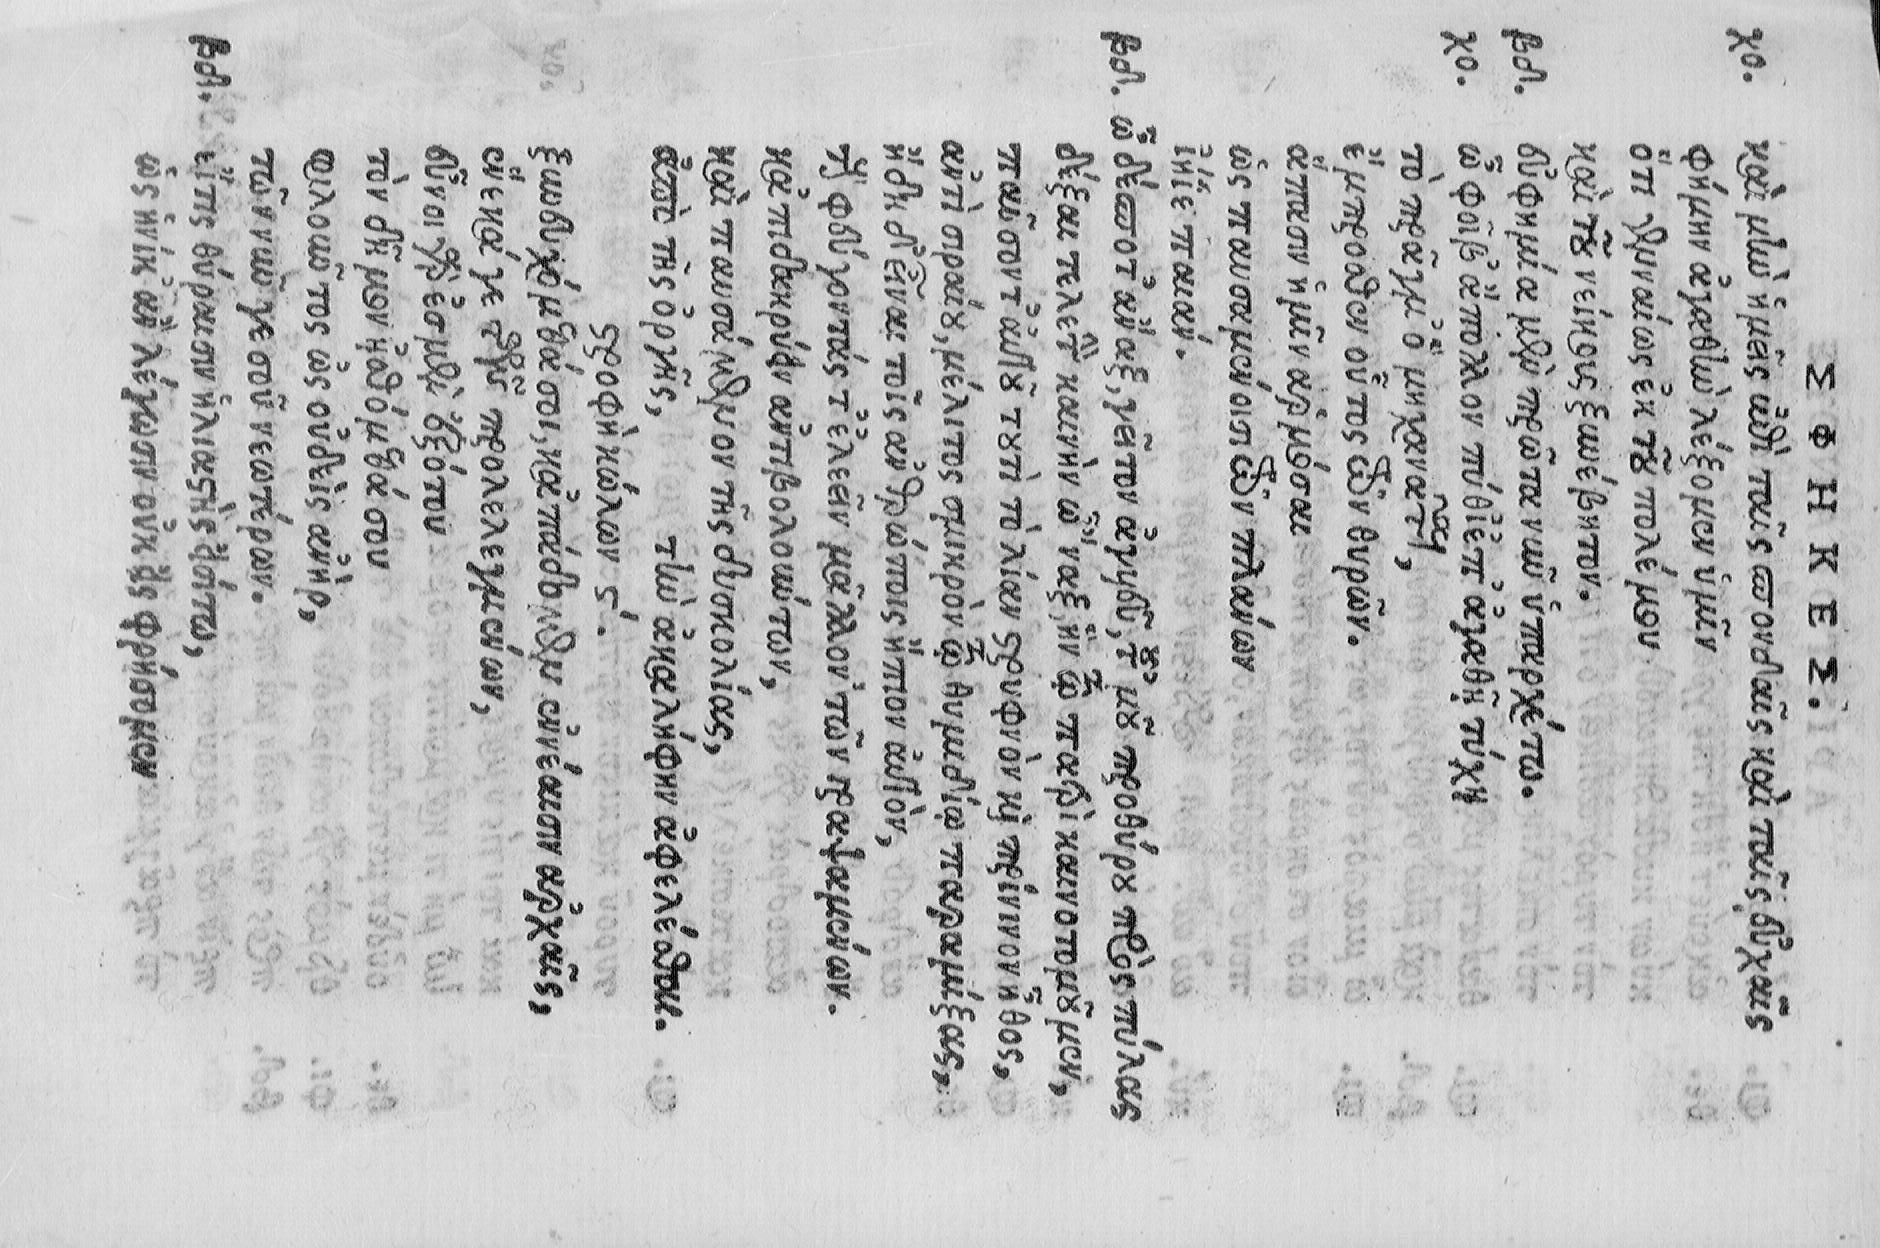 ΣΦΗΚΕΣ.
χο. καὶ μὴν ἡμεῖς ἐπὶ ταῖς σπονδαῖς καὶ ταῖς εὐχαῖς
φήμην ἀγαθὴν λέξομεν ὑμῖν
ὅτι γενναίως ἐκ τοῦ πολέμου
καὶ τοῦ νείκους ξυνέβητον.
βδ. εὐφημία μὲν πρῶτα νῦν ὑπαρχέτω.
χο. ὦ φοῖβ' ἄπολλον πύθι' ἐπ' ἀγαθῇ τύχῃ
τὸ πρᾶγμ' ὃ μηχανᾶται,
ἔμπροσθεν οὗτος τῶν θυρῶν.
ἅπασιν ἡμῖν ἁρμόσαι
ὡς παυσαμένοισι τῶν πλάνων
ἰήιε παιάν.
βδ. ὦ δέσποτ' ἄναξ, γεῖτον ἀγυιεῦ, τοῦ 'μοῦ προθύρου πρὸς πύλας
δέξαι τελετὴν καινὴν ὦναξ, ἣν τῷ πατρὶ καινοτομοῦμεν,
παῦσόν τ' αὐτοῦ τουτὶ τὸ λίαν στρυφνὸν καὶ πρίνινον ἦθος,
ἀντὶ σιραίου, μέλιτος σμικρὸν τῷ θυμιδίῳ παραμίξας,
ἤδη δ' εἶναι τοῖς ἀνθρώποις ἤπιον αὐτὸν,
τοὺς φεύγοντάς τ' ἐλεεῖν μᾶλλον τῶν γραψαμένων.
κἀπιδακρύειν ἀντιβολούντων,
καὶ παυσάμενον τῆς δυσκολίας,
ἀπὸ τῆς ὀργῆς, τὴν ἀκαλήφην ἀφελέσθαι.
στροφὴ κώλων ϛ.
ξυνευχόμεσθά σοι, κἀπάδομεν νέαισιν ἀρχαῖς,
ἕνεκά γε τῶν προλελεγμένων,
εὖνοι γάρ ἐσμεν ἐξότου
τὸν δῆμον ᾐσθόμεσθά σου
φιλοῦντος ὡς οὐδεὶς ἀνὴρ,
τῶν νῦν γε σοῦ νεωτέρων.
βδ. εἴ τις θύρασιν ἡλιαστὴς εἰσίτω,
ὡς ἡνίκ' ἂν λέγωσιν οὐκ εἰσφρήσομεν